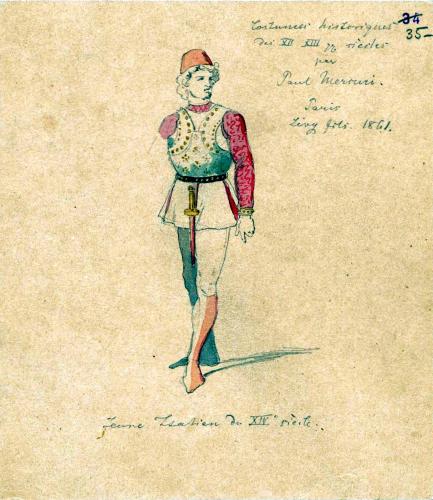 Costumes historiques
des XII XIII siècles
par
Paul Mercuri.
Paris
Lévy fils. 1861.
34
35-
Jeune Italien du XIVe siècle.